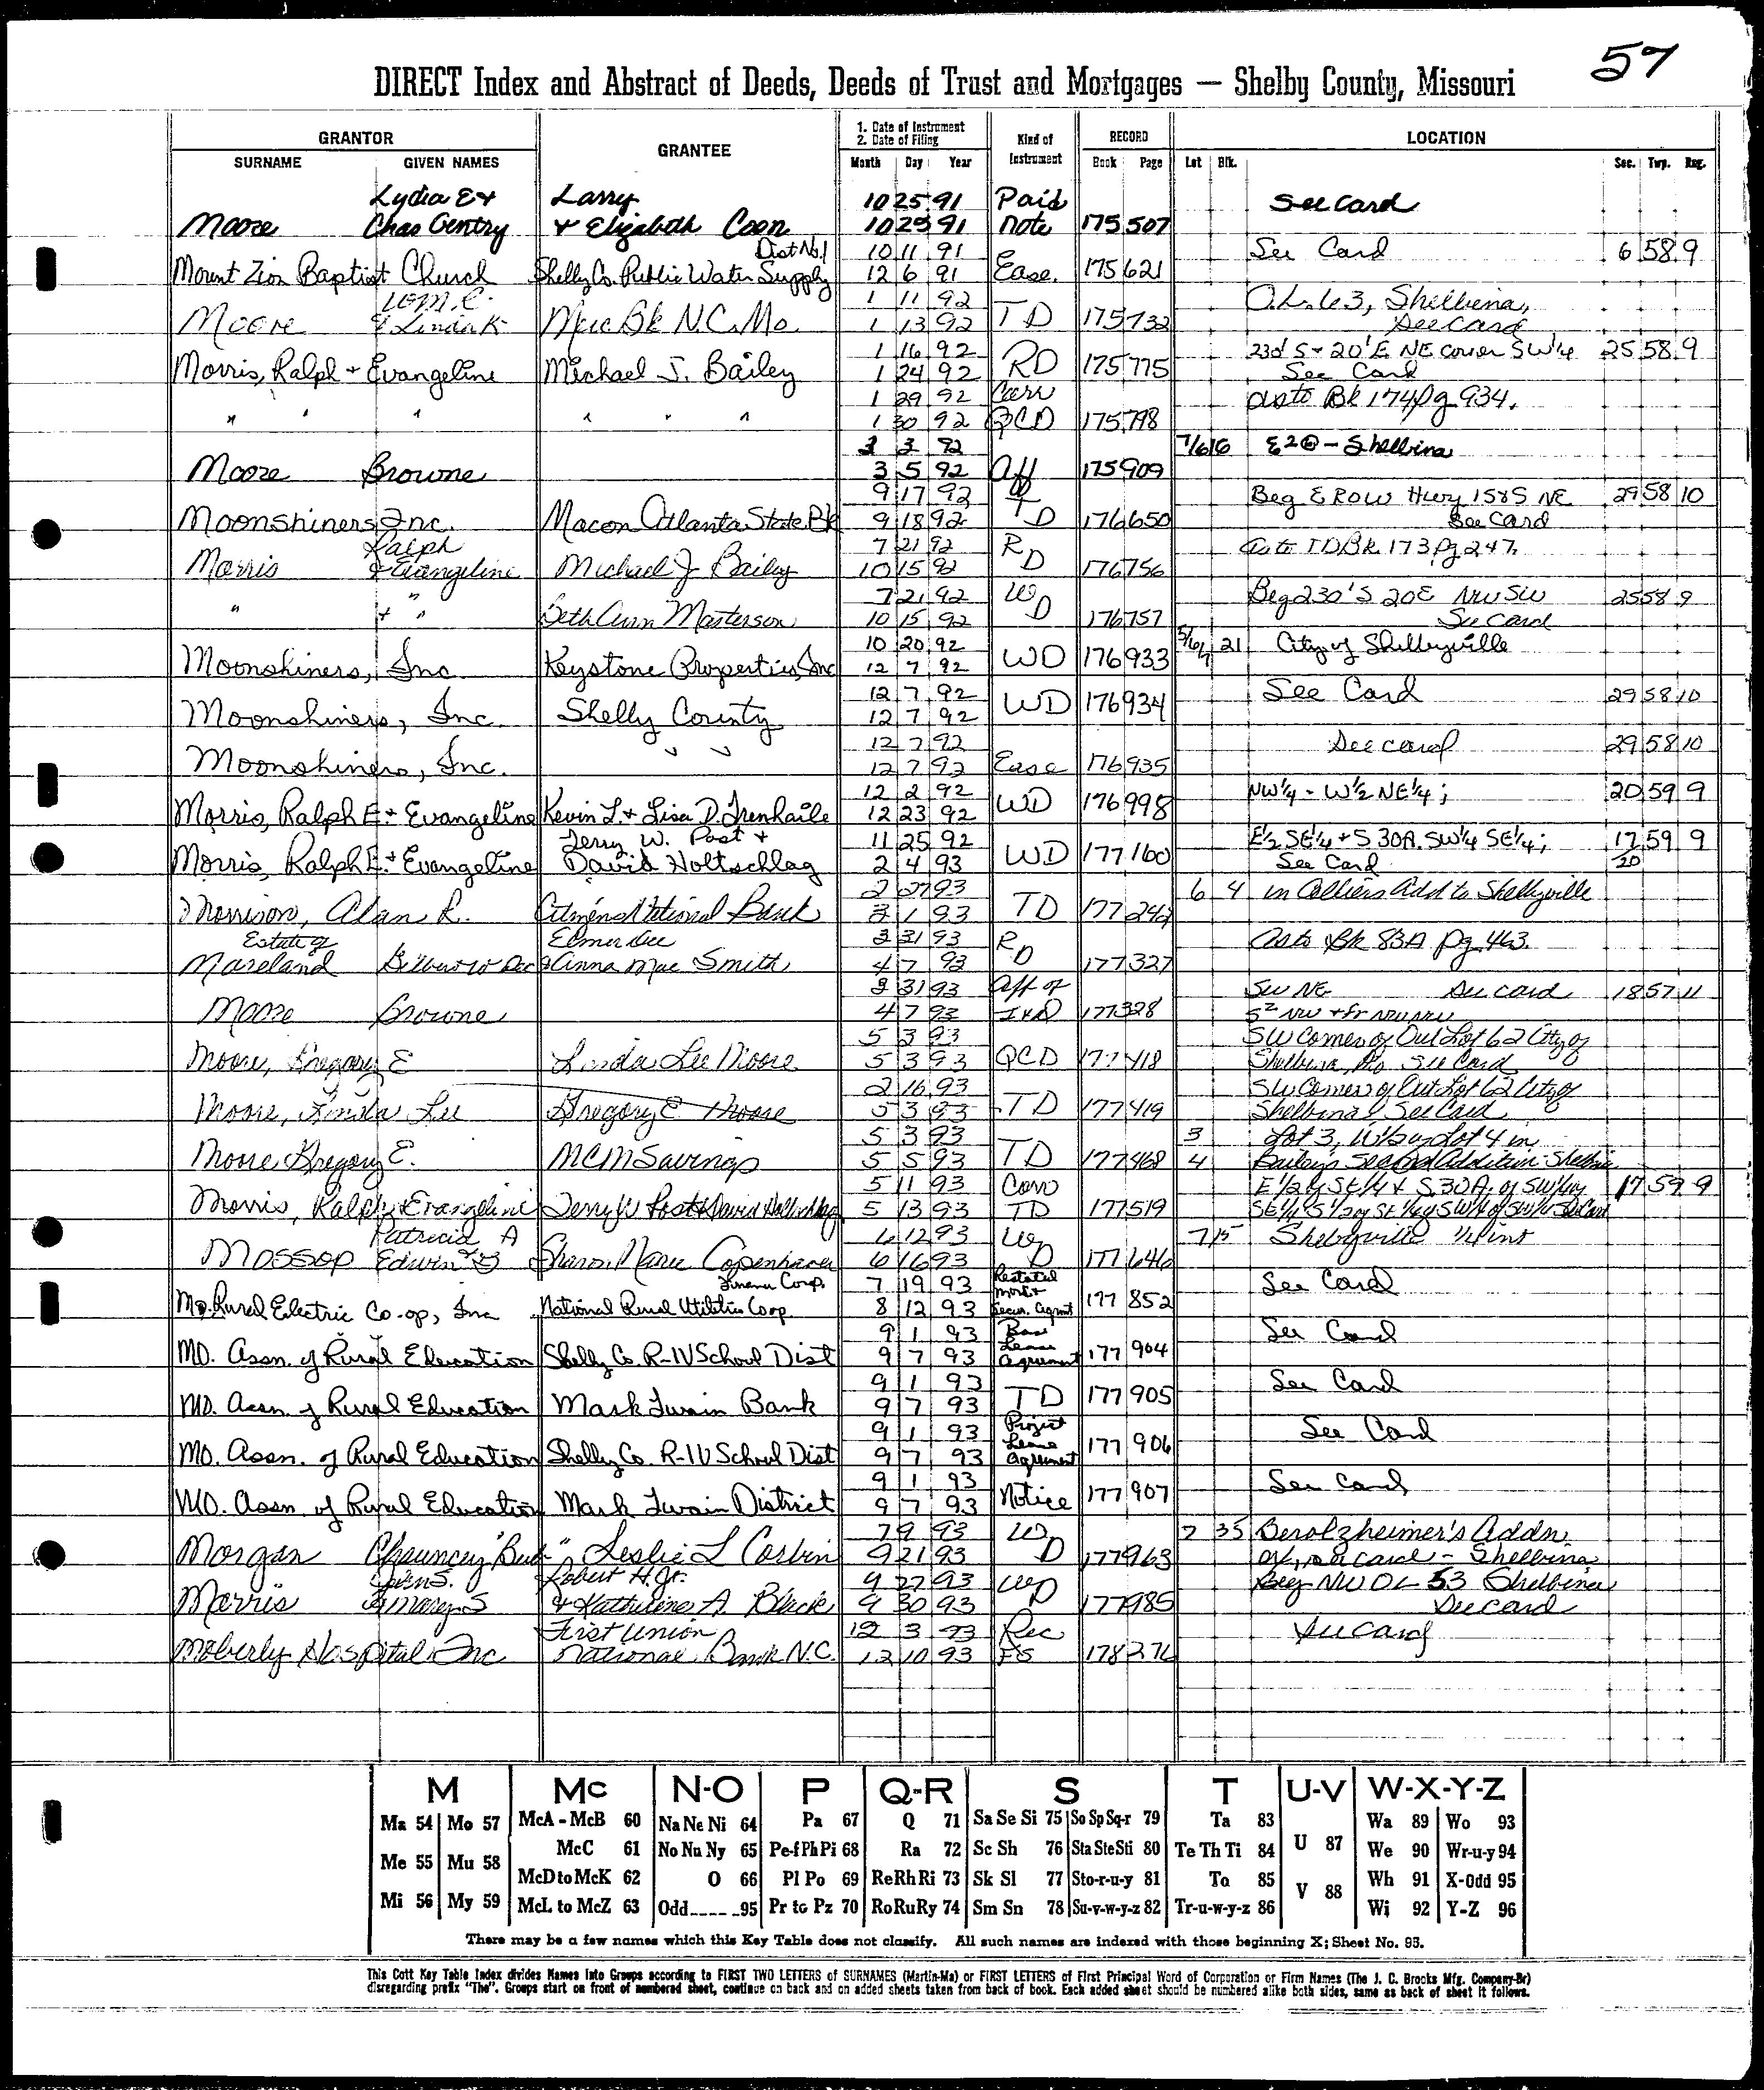 57
DIRECT Index and Abstract of Deeds, Deeds of Trust and Mortgages — Shelby County, Missouri
GRANTOR GRANTEE 1. Date of Instrument 2. Date of Filing Kind of Instrument RECORD LOCATION
SURNAME GIVEN NAMES Month Day Year Book Page Lot Blk. Sec. Twp. Rng.
Lydia E + Larry 10 25 91 Paid See Card
Moore Chas Gentry + Elizabeth Coon 10 25 91 note 175 507
Dist No. 1 10 11 91 See Card 6 58 9
Mount Zion Baptist Church Shelby Co. Public Water Supply 12 6 91 Ease. 175 621
Wm. C. 1 11 92 O.L. 63, Shelbina,
Moore & Linda K Merc Bk N.C. Mo. 1 13 92 TD 175 732 See Card
1 16 92 23d S + 20' E NE corner SW 1/4 25 58 9
Morris, Ralph + Evangeline Michael J. Bailey 1 24 92 RD 175 775 See Card
1 29 92 Corr as to Bk 174 pg 934.
" " " " " " 1 30 92 QCD 175 798
3 3 92 7/6 6 E 20 - Shelbina
Moore Browne 3 5 92 Aff 175 909
9 17 92 T Beg E ROW Hwy 15 & S NE 29 58 10
Moonshiners, Inc. Macon Atlanta State Bk 9 18 92 D 176 650 See Card
Ralph 7 21 92 R as to TD Bk 173 pg 247.
Morris & Evangeline Michael J Bailey 10 15 92 D 176 756
7 21 92 W Beg 230' S 20 E NW SW 25 58 9
" + " Beth Ann Masterson 10 15 92 D 176 757 See Card
10 20 92 5/6/7 21 City of Shelbyville
Moonshiners, Inc Keystone Properties, Inc 12 7 92 WD 176 933
12 7 92 See Card 29 58 10
Moonshiners, Inc. Shelby County 12 7 92 WD 176 934
12 7 92 See card 29 58 10
Moonshiners, Inc. " " 12 7 92 Ease 176 935
12 2 92 NW 1/4 - W 1/2 NE 1/4; 20 59 9
Morris, Ralph E. + Evangeline Kevin L. + Lisa D. Trenhaile 12 23 92 WD 176 998
Terry W. Post + 11 25 92 E 1/2 SE 1/4 + S 30A. SW 1/4 SE 1/4; 17 59 9
Morris, Ralph E. + Evangeline David Holtschlag 2 4 93 WD 177 160 See Card 20
2 27 93 6 4 in Colliers Add to Shelbyville
Morrison, Alan R. Citizens National Bank 3 1 93 TD 177 246
Estate of Elmer Lee 3 31 93 R as to Bk 83A pg 463.
Moreland Gilbert W Dec & Anna Mae Smith 4 7 93 D 177 327
3 31 93 Aff of SW NE See card 18 57 11
Moore Browne 4 7 93 177 328
5 3 93 SW Corner of Out Lot 62 City of
Moore, Gregory E Linda Lee Moore 5 3 93 QCD 177 418 Shelbina, Mo See Card
2 16 93 SW Corner of Out Lot 62 City of
Moore, Linda Lee Gregory E Moore 5 3 93 TD 177 419 Shelbina See Card
5 3 93 3 Lot 3, W 1/2 of Lot 4 in
Moore Gregory E. MCM Savings 5 5 93 TD 177 468 4 Bailey's Second Addition Shelbina
5 11 93 Corr E 1/2 of SE 1/4 & S. 30 A. of SW 1/4 of 17 59 9
Morris, Ralph & Evangeline Terry W Post & David Holtschlag 5 13 93 TD 177 519 See Card
Patricia A 6 12 93 W 7 15 Shelbyville
Mossop Edwin Sharon Marie Copenhaver 6 16 93 D 177 646
Finance Corp. 7 19 93 Restated mort + See Card
Mo. Rural Electric Co-op, Inc National Rural Utilities Coop. 8 12 93 Secur. Agmt 177 852
9 1 93 Base Lease See Card
MO. Assn. of Rural Education Shelby Co. R-IV School Dist 9 7 93 Agreement 177 904
9 1 93 See Card
MO. Assn. of Rural Education Mark Twain Bank 9 7 93 TD 177 905
9 1 93 Project Lease See Card
MO. Assn. of Rural Education Shelby Co. R-IV School Dist 9 7 93 Agreement 177 906
9 1 93 See Card
MO. Assn. of Rural Education Mark Twain District 9 7 93 Notice 177 907
7 9 93 W 2 35 Berolzheimer's Addn
Morgan Chauncey "Bud" Leslie L Corbin 9 21 93 D 177 963 See card - Shelbina
Robert H. Jr. 9 27 93 W Beg NW OL 53 Shelbina
Morris & Mary S & Katherine A Black 9 30 93 D 177 985 See card
First Union 12 3 93 Rec See Card
Moberly Hospital Inc National Bank N.C. 12 10 93 FS 178 276
M Mc N-O P Q-R S T U-V W-X-Y-Z
Ma 54 Mo 57 McA - McB 60 Na Ne Ni 64 Pa 67 Q 71 Sa Se Si 75 So Sp Sq-r 79 Ta 83 U 87 Wa 89 Wo 93
Me 55 Mu 58 McC 61 No Nu Ny 65 Pe-f Ph Pi 68 Ra 72 Sc Sh 76 Sta Ste Sti 80 Te Th Ti 84 We 90 Wr-u-y 94
McD to McK 62 O 66 Pl Po 69 Re Rh Ri 73 Sk Sl 77 Sto-r-u-y 81 To 85 V 88 Wh 91 X-Odd 95
Mi 56 My 59 McL to McZ 63 Odd 95 Pr to Pz 70 Ro Ru Ry 74 Sm Sn 78 Su-v-w-y-z 82 Tr-u-w-y-z 86 Wi 92 Y-Z 96
There may be a few names which this Key Table does not classify. All such names are indexed with those beginning X; Sheet No. 95.
This Cott Key Table Index divides Names into Groups according to FIRST TWO LETTERS of SURNAMES (Martin-Ma) or FIRST LETTERS of First Principal Word of Corporation or Firm Names (The J. C. Brooks Mfg. Company-Br)
disregarding prefix "The". Groups start on front of numbered sheet, continue on back and on added sheets taken from back of book. Each added sheet should be numbered alike both sides, same as back of sheet it follows.